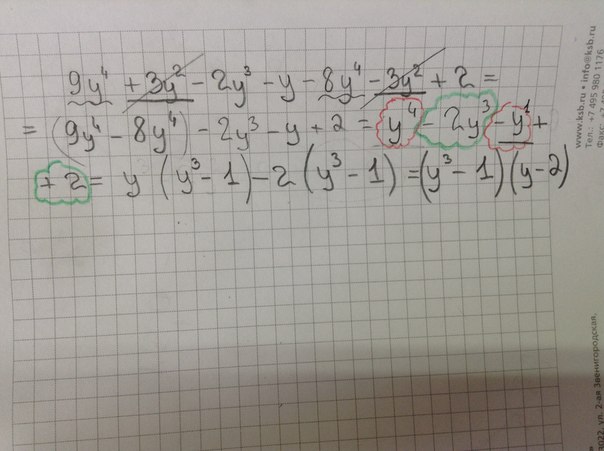 9y⁴ + 3y² - 2y³ - y - 8y⁴ - 3y² + 2 =
= (9y⁴ - 8y⁴) - 2y³ - y + 2 = y⁴ - 2y³ - y¹ +
+ 2 = y (y³ - 1) - 2 (y³ - 1) = (y³ - 1)(y - 2)
www.ksb.ru • info@ksb.ru
Тел.: +7 495 980 1176
2022, ул. 2-ая Звенигородская,